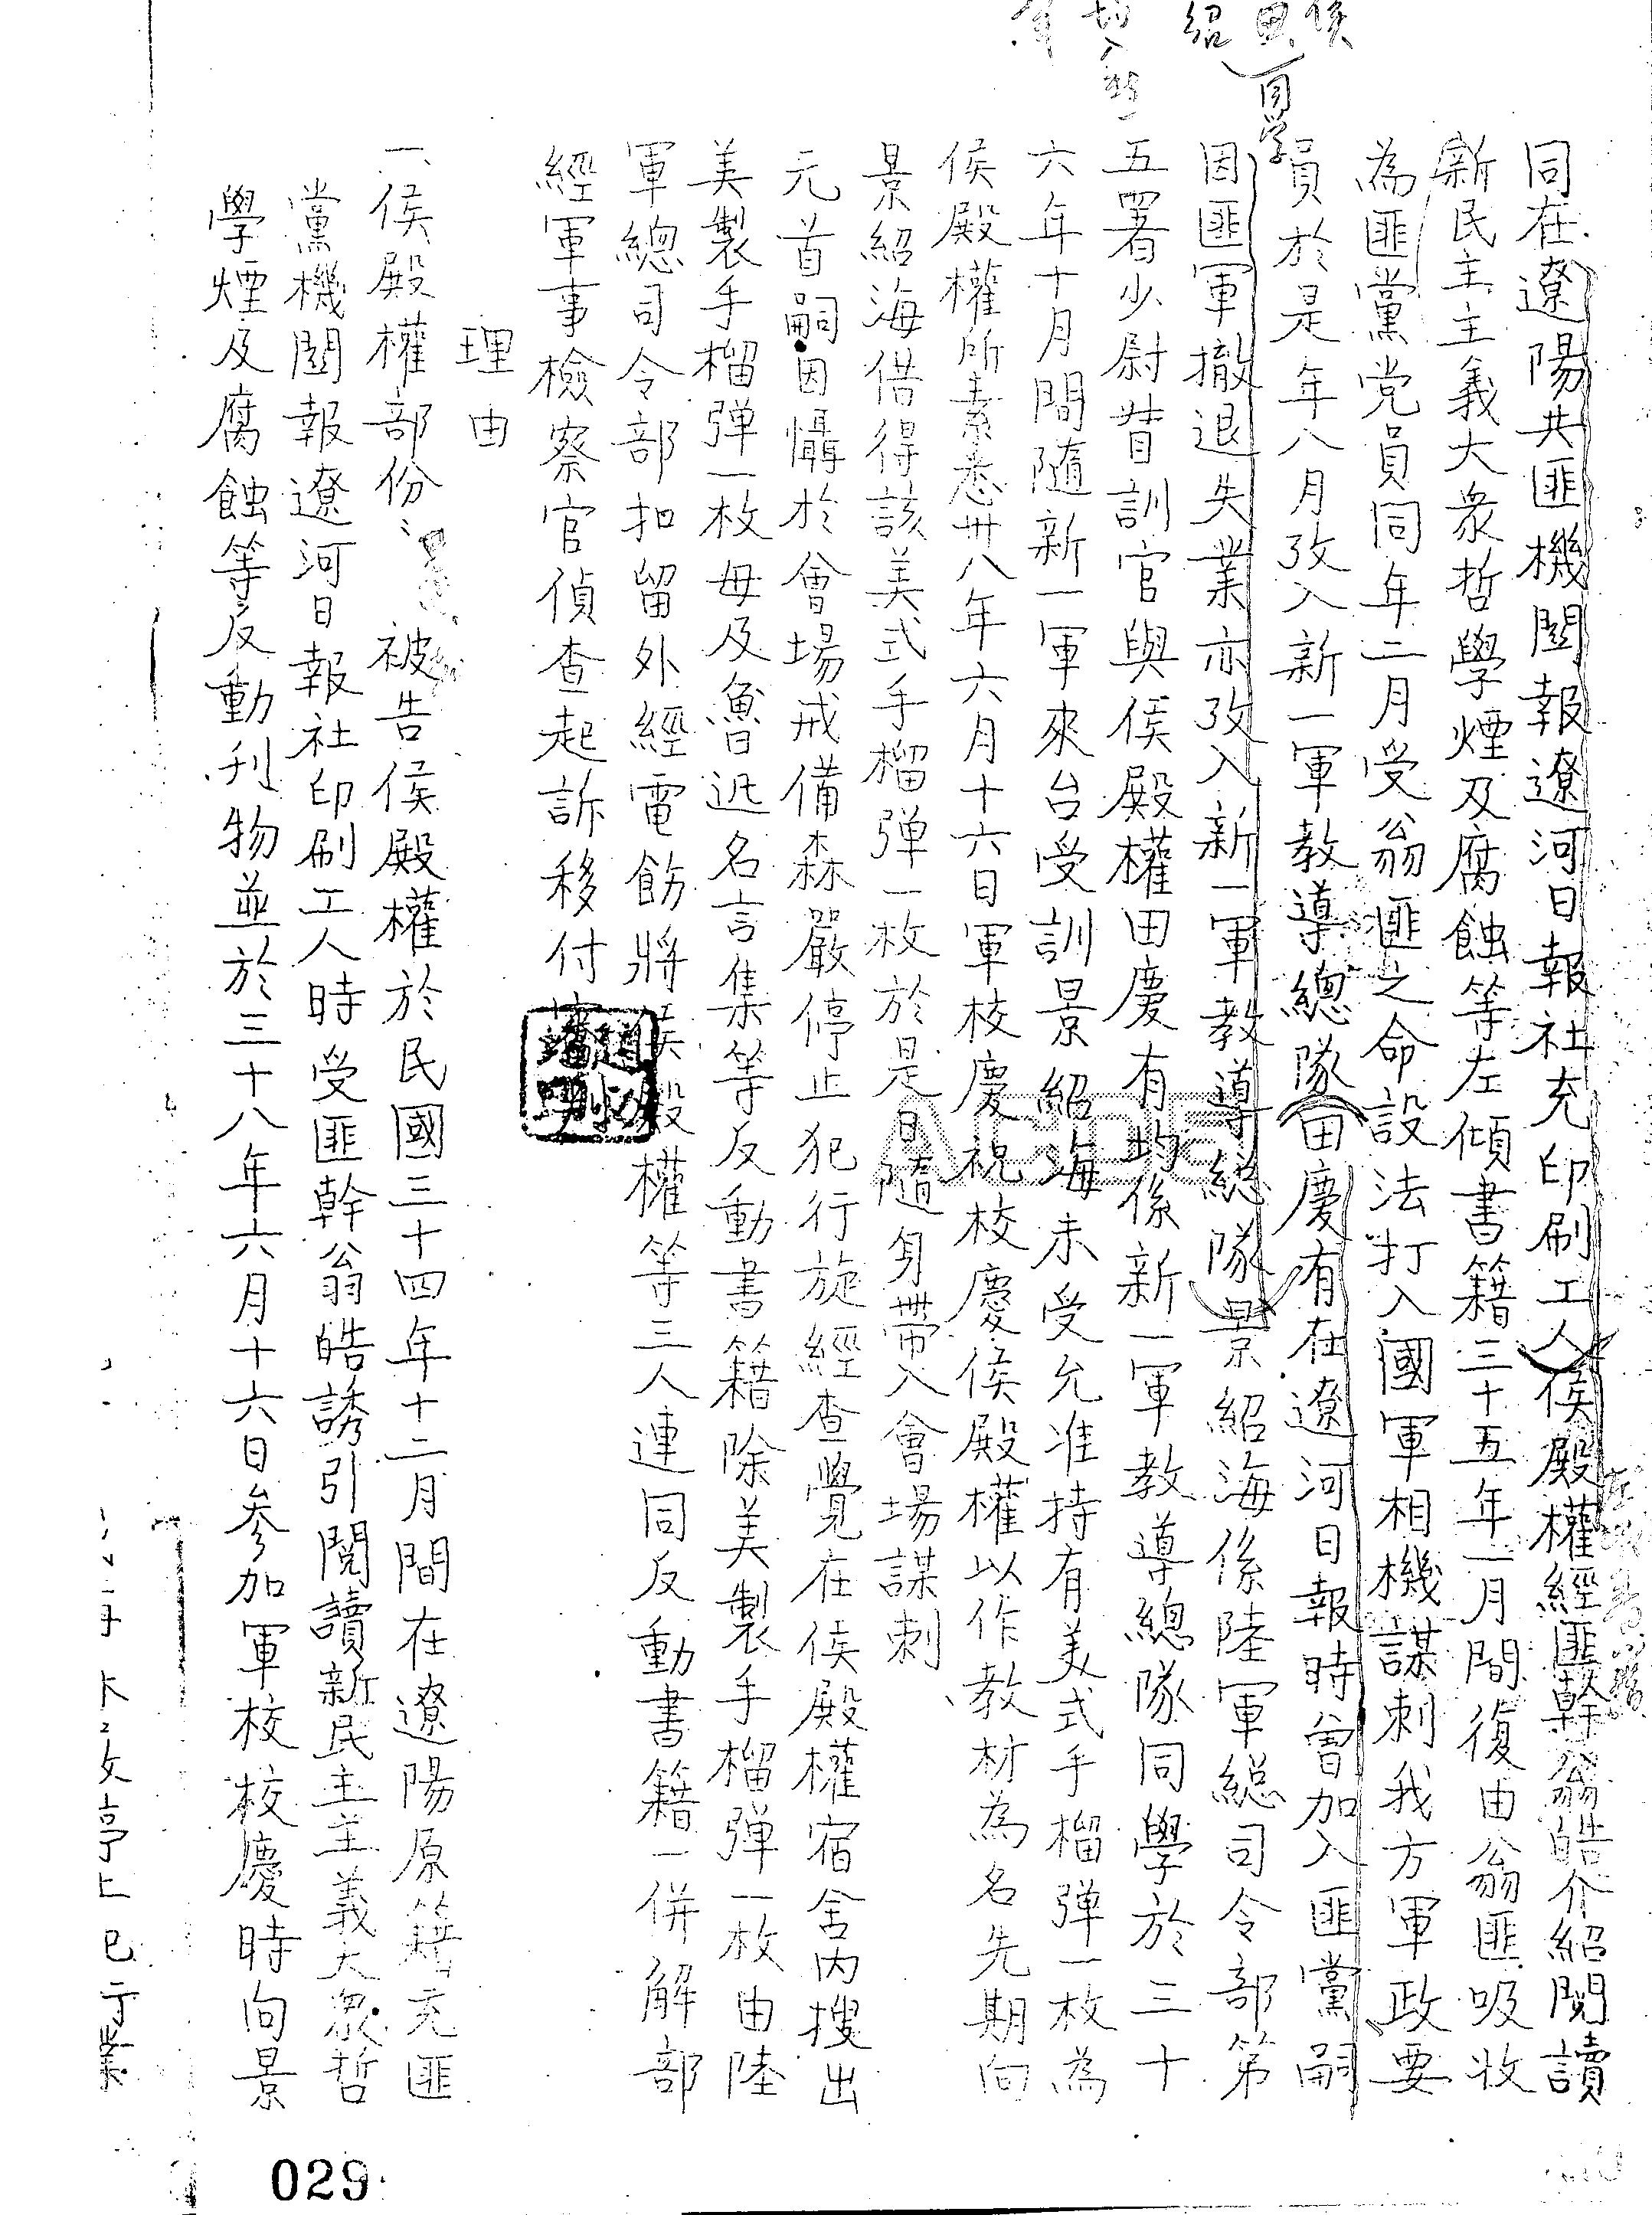 侯
田
紹
同学
同在遼陽共匪機関報遼河日報社充印刷工人侯殿權經匪幹翁皓介紹閱讀
新民主主義大衆哲學煙及腐蝕等左傾書籍三十五年一月間復由翁匪吸收
為匪黨党員同年二月受翁匪之命設法打入國軍相機謀刺我方軍政要
員於是年八月攷入新一軍教導總隊田慶有在遼河日報時曾加入匪黨嗣
因匪軍撤退失業亦攷入新一軍教導総隊景紹海係陸軍総司令部第
五署少尉昔訓官與侯殿權田慶有均係新一軍教導總隊同學於三十
六年十月間隨新一軍來台受訓景紹海未受允准持有美式手榴弹一枚為
侯殿權所素悉卅八年六月十六日軍校慶祝校慶侯殿權以作教材為名先期向
景紹海借得該美式手榴弹一枚於是日隨身帶入會場謀刺
元首嗣因懾於會場戒備森嚴停止犯行旋經查覺在侯殿權宿舍内搜出
美製手榴弹一枚母及魯迅名言集等反動書籍除美製手榴弹一枚由陸
軍總司令部扣留外經電飭將侯殿權等三人連同反動書籍一併解部
經軍事檢察官偵查起訴移付
理由
一、侯殿權部份：被告侯殿權於民國三十四年十二月間在遼陽原籍充匪
黨機関報遼河日報社印刷工人時受匪幹翁皓誘引閱讀新民主主義大衆哲
學煙及腐蝕等反動刋物並於三十八年六月十六日參加軍校校慶時向景
029